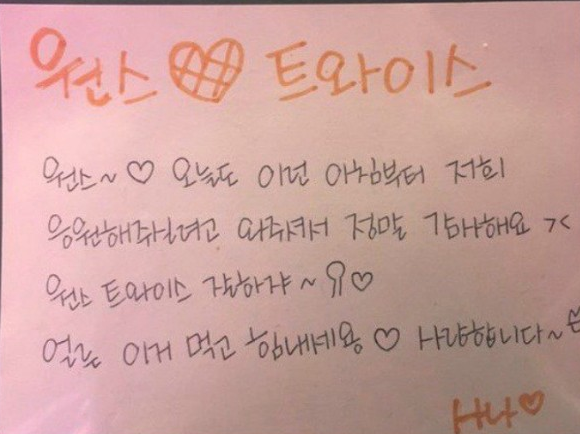 원스♡트와이스
원스~♡ 오늘도 이런 아침부터 저희
응원해주실려고 와주셔서 정말 감사해요 ><
원스 트와이스 잘하쟈~ ♡
얼른 이거 먹고 힘내세용♡ 사랑합니다~
사나♡